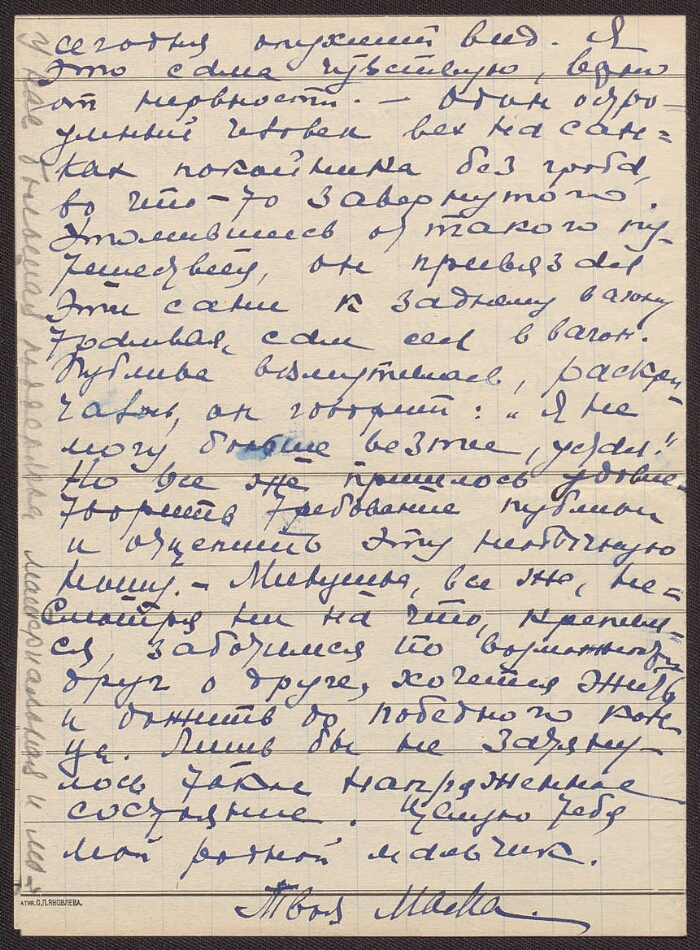 сегодня опухший вид. Я
это сама чувствую, верно
от нервности. — Один остро-
умный человек вез на сан-
ках покойника без гроба,
во что-то завернутого.
Утомившись от такого пу-
тешествия, он привязал
эти сани к заднему вагону
трамвая, сам сел в вагон.
Публика возмутилась, раскри
чалась, он говорит: „Я не
могу больше везти, устал."
Но все же пришлось удовле-
творить требование публики
и отцепить эту необычную
ношу. — Милуша, все же, не-
смотря ни на что, крепим-
ся, заботимся по возможности
друг о друге, хочется жить
и дожить до победного кон
ца. Лишь бы не затяну-
лось такое напряженное
состояние. Целую тебя
мой родной мальчик.
Твоя Мама.
У нас большая поддержка материальная и мо-
О.П.ЯКОВЛЕВА.